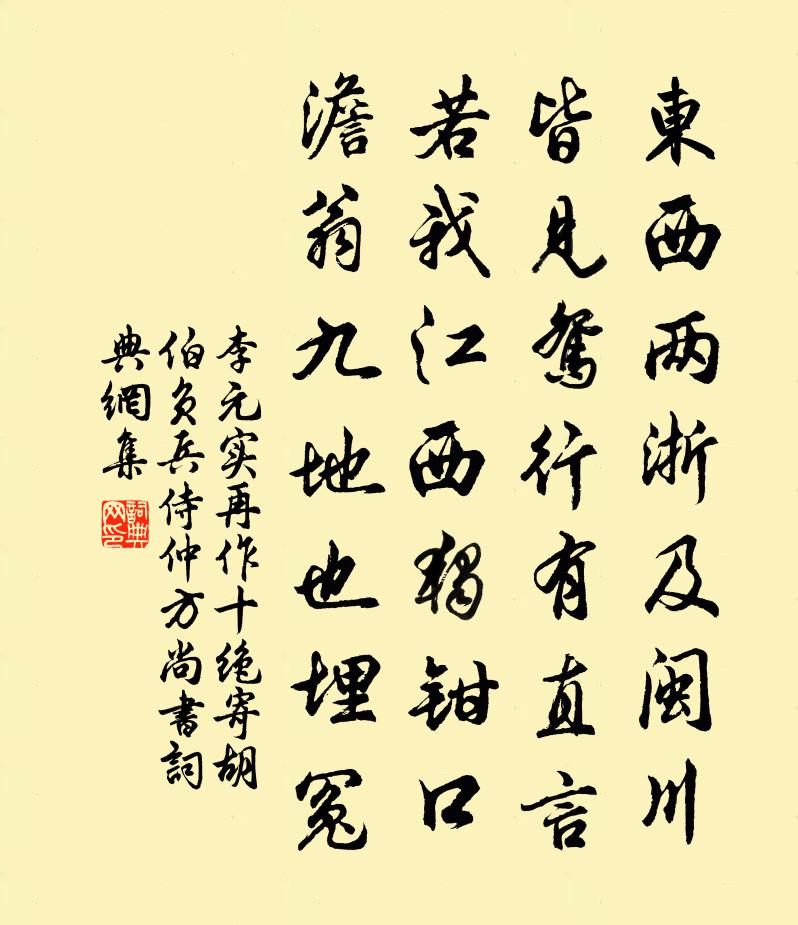 東西两浙及闽川
皆見鴛行有直言
若我江西獨鉗口
澹翁九地也埋冤
李元实再作十绝寄胡
伯负兵侍仲方尚書詞
典網集
詞典網印